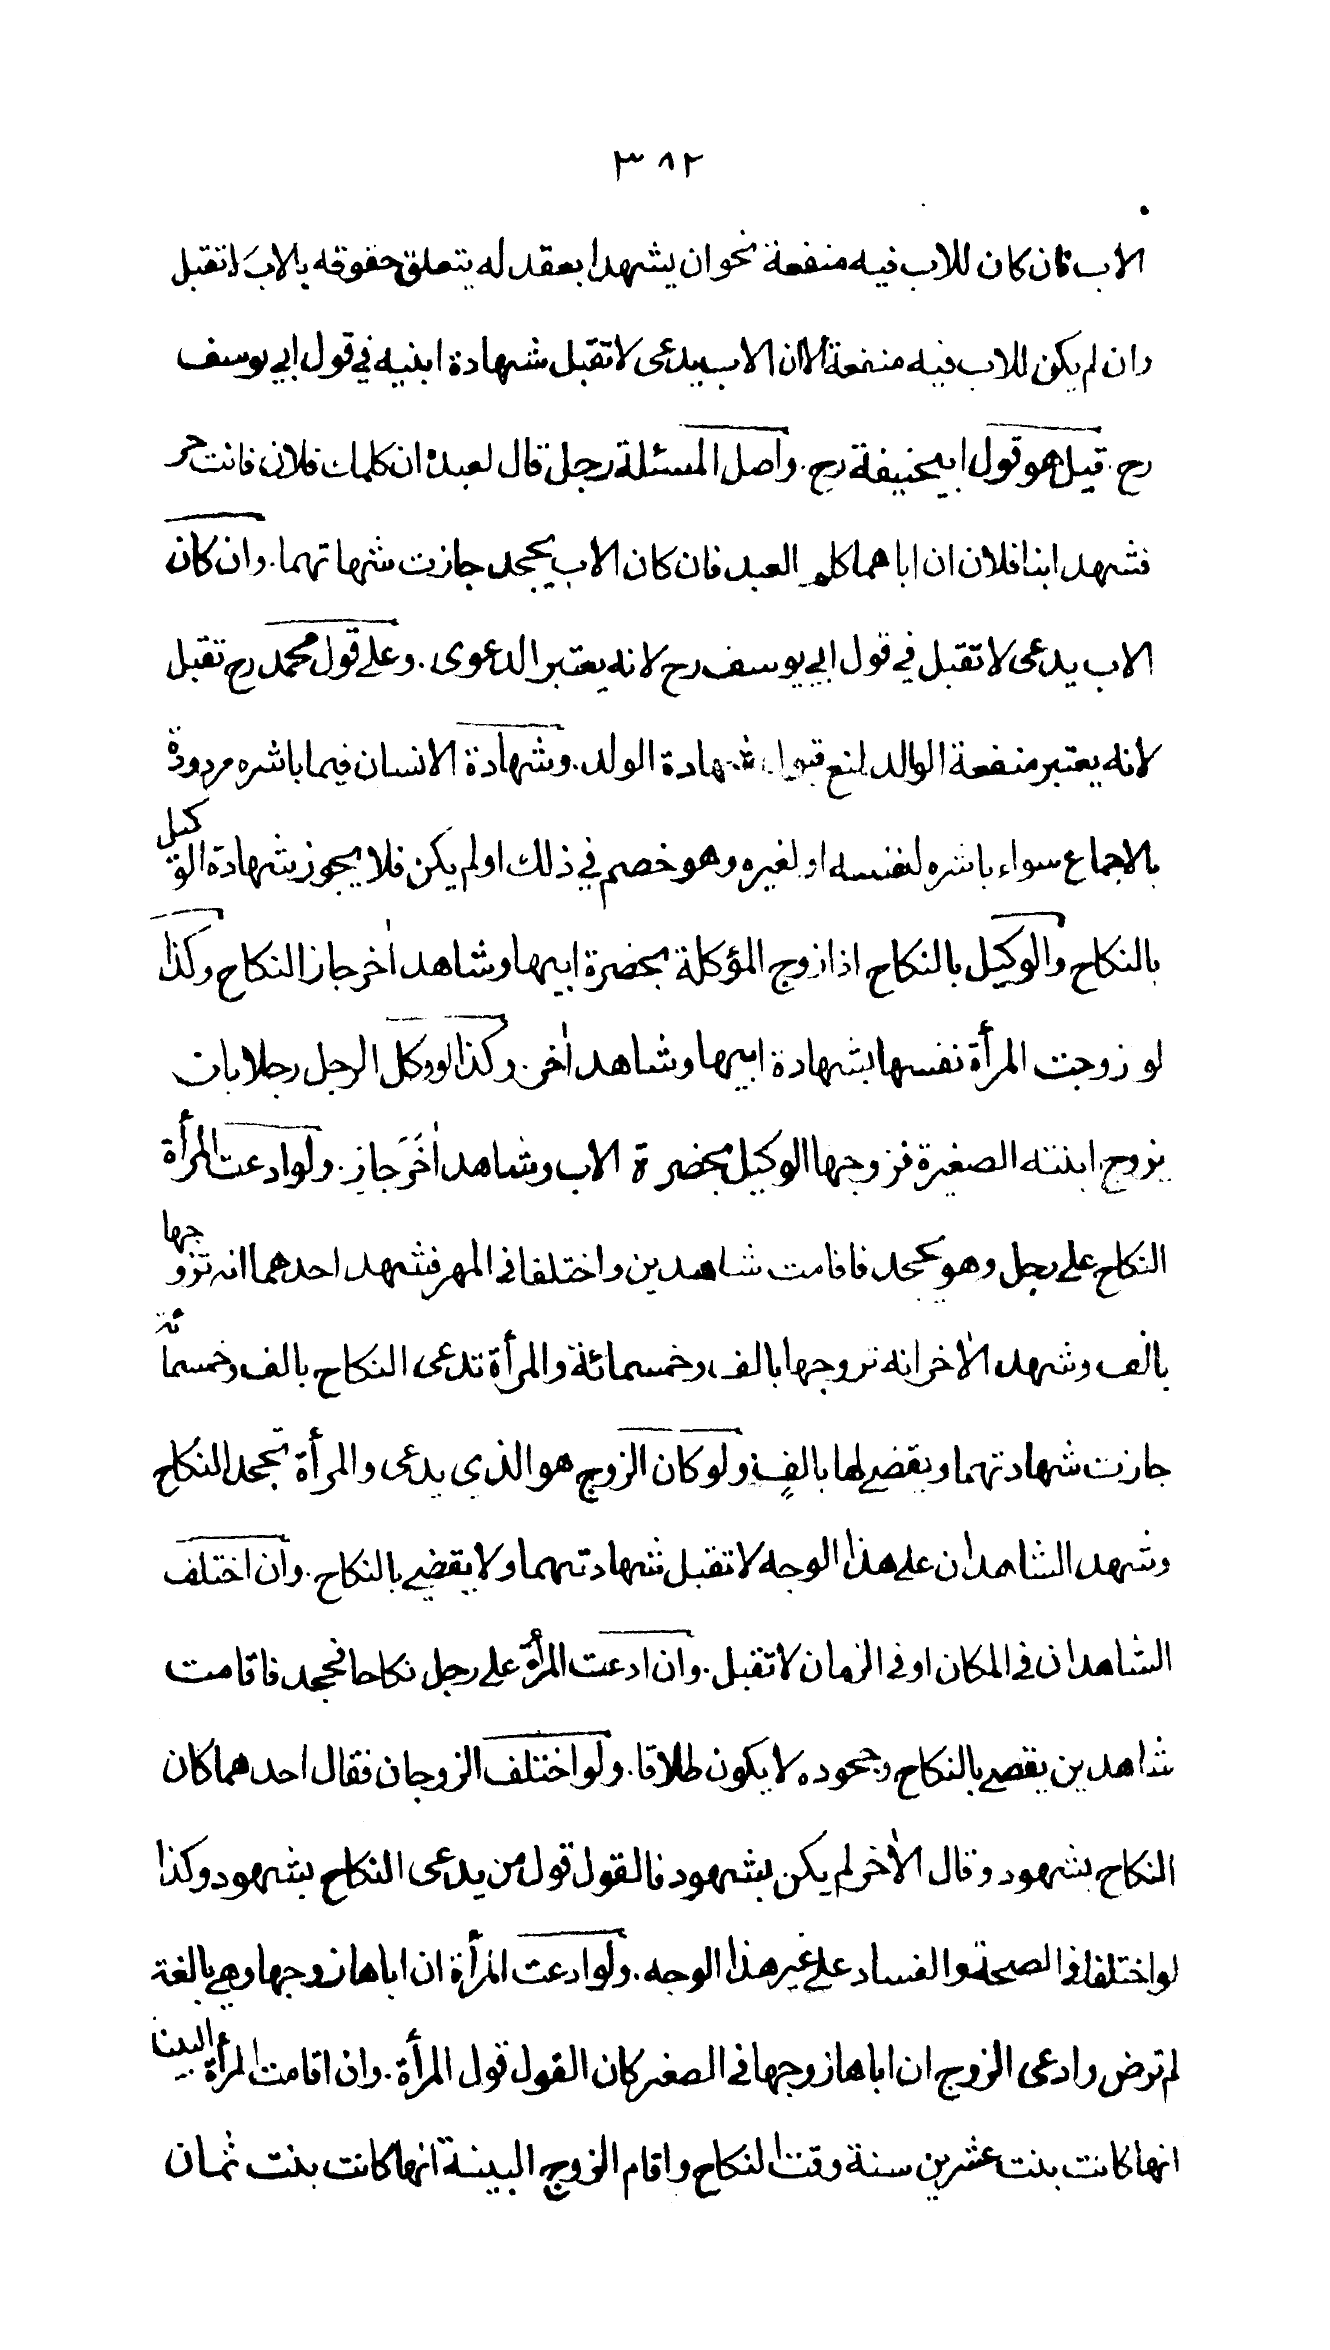 ٣٨٢
الاب فان كان للاب فيه منفعة نحو ان يشهدا بعقد له يتعلق حقوقه بالاب لا تقبل
وان لم يكن للاب فيه منفعة الا ان الاب يدعى لا تقبل شهادة ابنيه في قول ابي يوسف
رح. قيل هو قول ابيحنيفة رح. واصل المسئلة رجل قال لعبده ان كلمك فلان فانت حر
فشهد ابنا فلان ان اباهما كلم العبد فان كان الاب يجحد جازت شهاتهما. وان كان
الاب يدعى لا تقبل في قول ابي يوسف رح لانه يعتبر الدعوى. وعلى قول محمد رح تقبل
لانه يعتبر منفعة الوالد لمنع قبول شهادة الولد. وشهادة الانسان فيما باشره مردودة
بالاجماع سواء باشره لنفسه او لغيره وهو خصم في ذلك اولم يكن فلا يجوز شهادة الوكيل
بالنكاح والوكيل بالنكاح اذا زوج المؤكلة بحضرة ابيها وشاهد اٰخر جاز النكاح وكذا
لو زوجت المرأة نفسها بشهادة ابيها وشاهد اٰخر. وكذا لو وكل الرجل رجلا بان
يزوج ابنته الصغيرة فزوجها الوكيل بحضرة الاب وشاهد اٰخَرَ جاز. ولو ادعت المرأة
النكاح على رجل وهو يجحد فاقامت شاهدين واختلفا فى المهر فشهد احدهما انه تزوجها
بالف وشهد الاٰخر انه تزوجها بالف وخمسمائة والمرأة تدعى النكاح بالف وخمسمائة
جازت شهادتهما ويقضى لها بالفٍ ولو كان الزوج هو الذي يدعى والمرأة تجحد النكاح
وشهد الشاهدان على هذا الوجه لا تقبل شهادتهما ولا يقضى بالنكاح. وان اختلف
الشاهدان فى المكان او فى الزمان لا تقبل. وان ادعت المرأة على رجل نكاحا فجحد فاقامت
شاهدين يقضى بالنكاح وجحوده لا يكون طلاقا. ولو اختلف الزوجان فقال احدهما كان
النكاح بشهود وقال الاٰخر لم يكن بشهود فالقول قول من يدعى النكاح بشهود وكذا
لو اختلفا فى الصحة والفساد على غير هذا الوجه. ولو ادعت المرأة ان اباها زوجها وهي بالغة
لم ترض وادعى الزوج ان اباها زوجها فى الصغر كان القول قول المرأة. وان اقامت المرأة البينة
انها كانت بنت عشرين سنة وقت النكاح واقام الزوج البينة انها كانت بنت ثمان